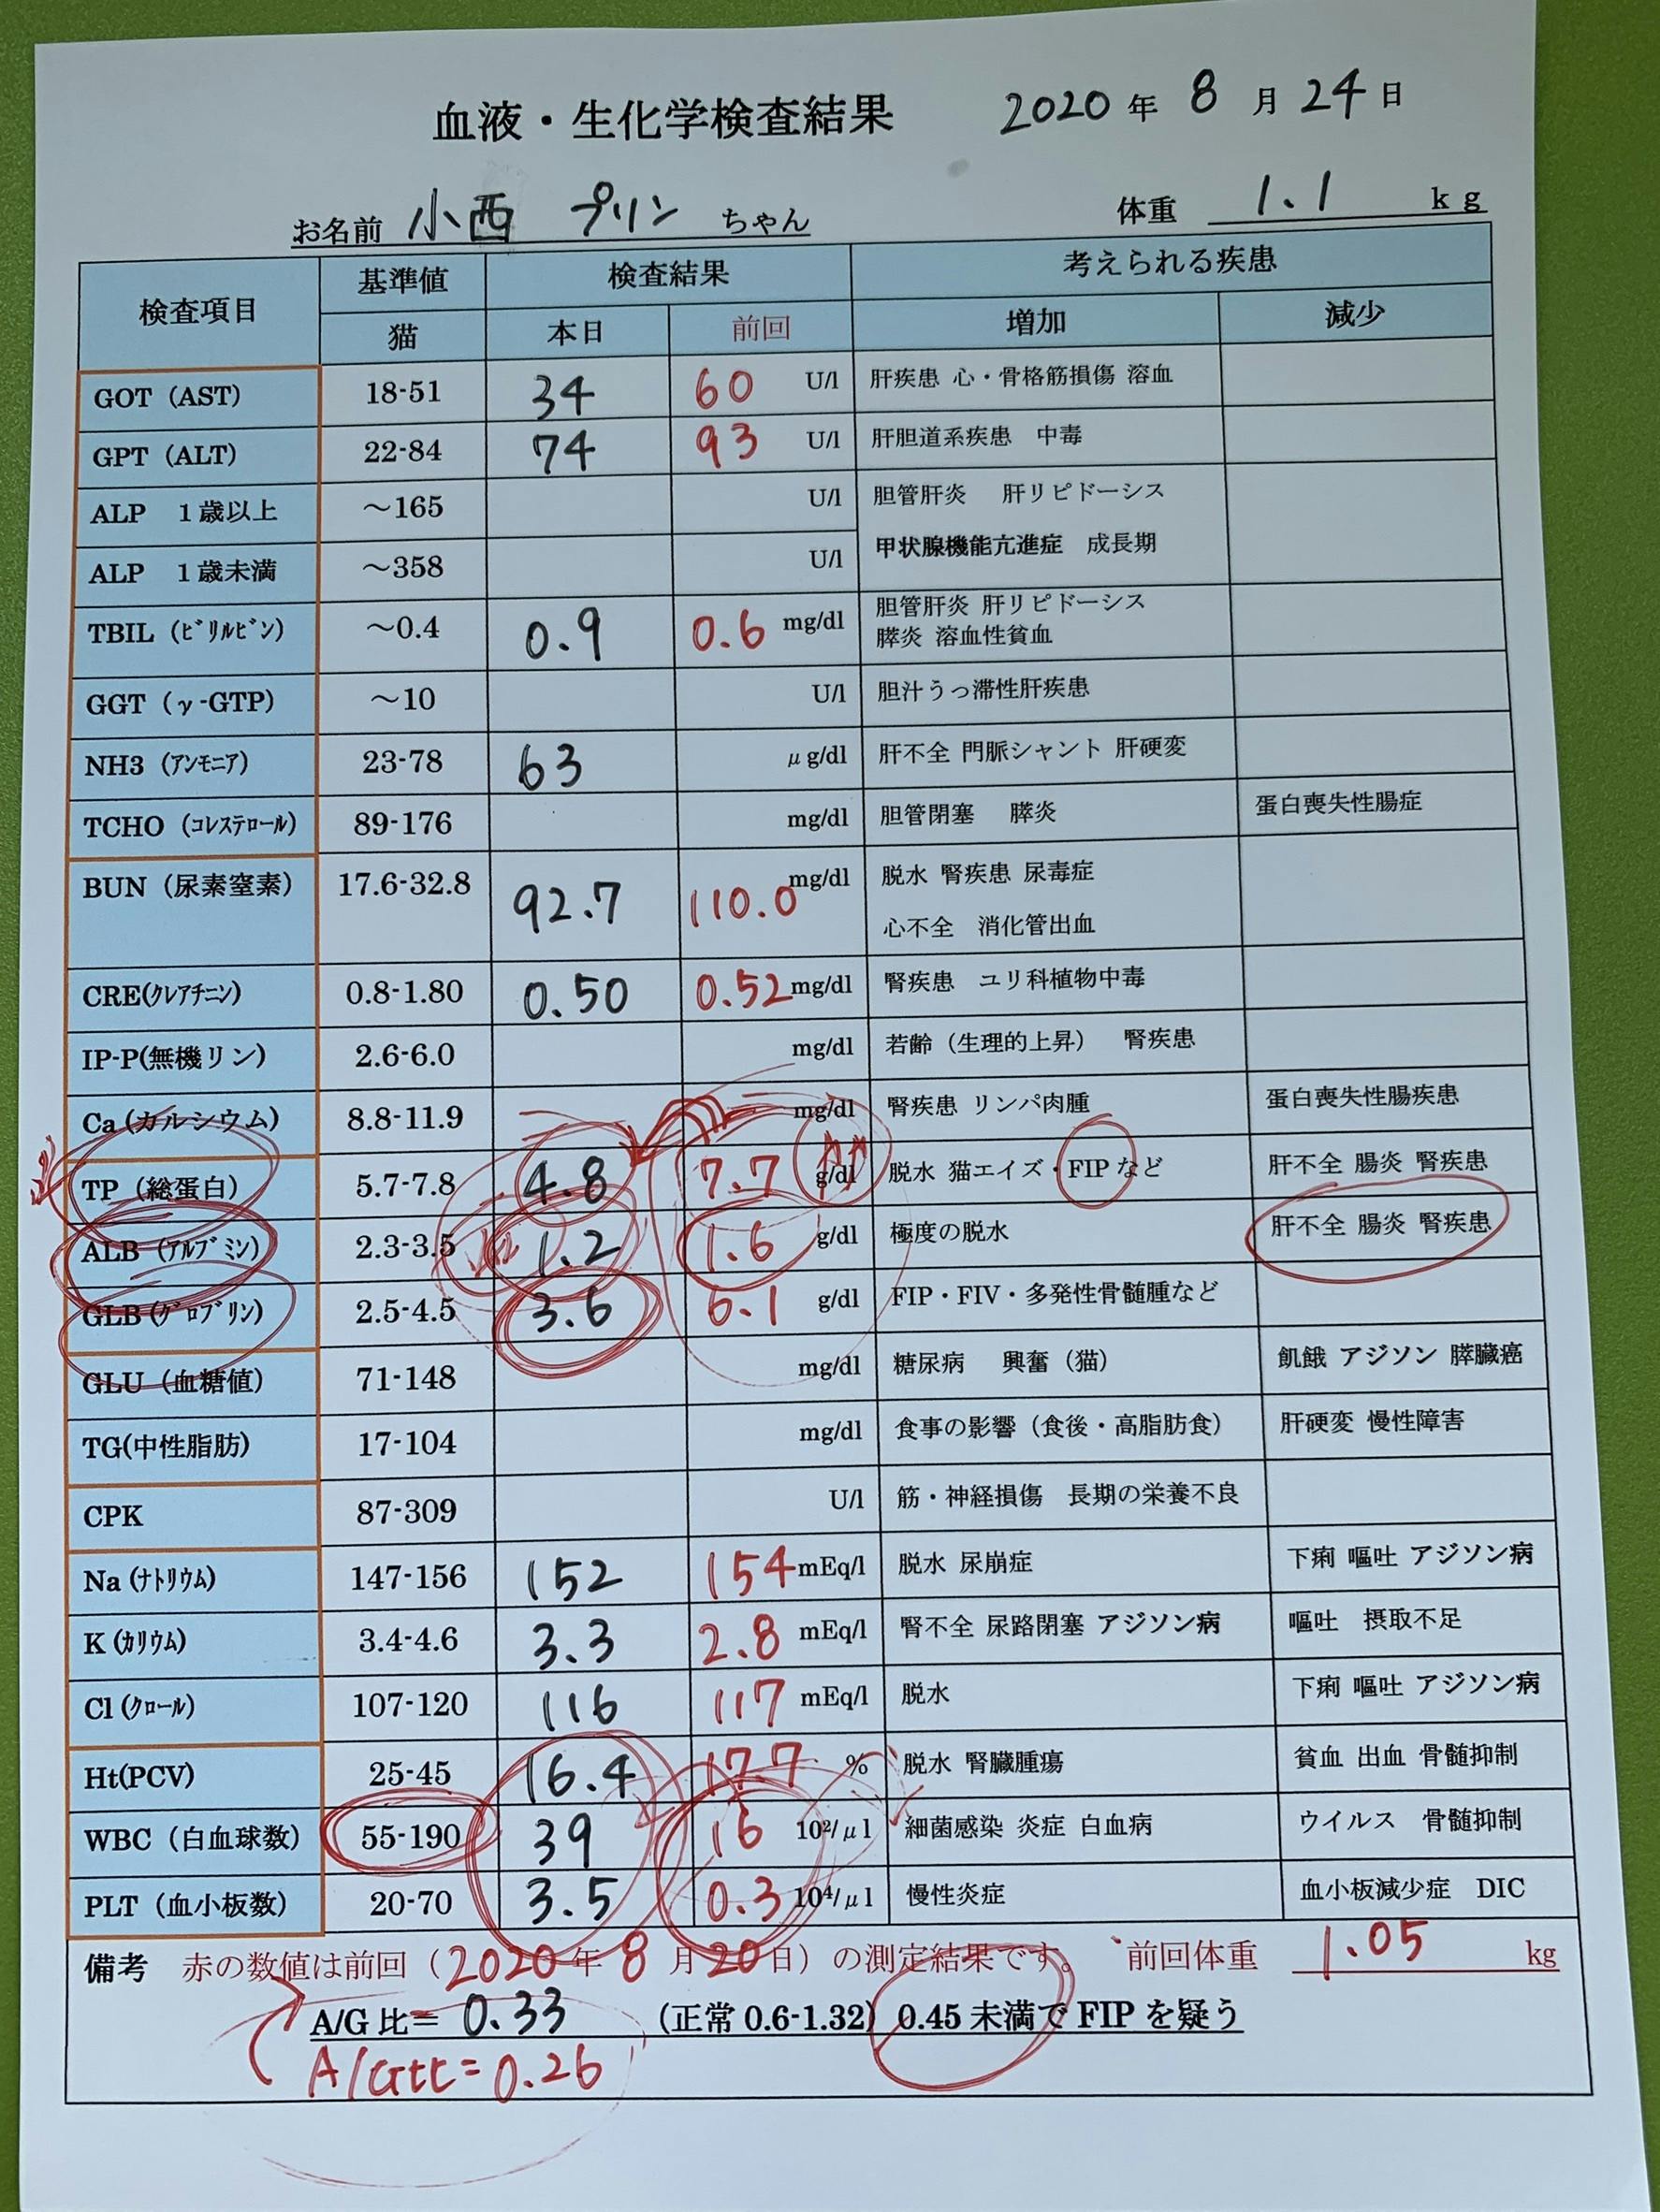 血液・生化学検査結果 2020 年 8 月 24 日
お名前 小西 プリン ちゃん 体重 1.1 kg
検査項目 基準値 検査結果 考えられる疾患
猫 本日 前回 増加 減少
GOT（AST） 18-51 34 60 U/l 肝疾患 心・骨格筋損傷 溶血
GPT（ALT） 22-84 74 93 U/l 肝胆道系疾患 中毒
ALP 1歳以上 ～165 U/l 胆管肝炎 肝リピドーシス
ALP 1歳未満 ～358 U/l 甲状腺機能亢進症 成長期
TBIL（ﾋﾞﾘﾙﾋﾞﾝ） ～0.4 0.9 0.6 mg/dl 胆管肝炎 肝リピドーシス
膵炎 溶血性貧血
GGT（γ-GTP） ～10 U/l 胆汁うっ滞性肝疾患
NH3（ｱﾝﾓﾆｱ） 23-78 63 μg/dl 肝不全 門脈シャント 肝硬変
TCHO（ｺﾚｽﾃﾛｰﾙ） 89-176 mg/dl 胆管閉塞 膵炎 蛋白喪失性腸症
BUN（尿素窒素） 17.6-32.8 92.7 110.0 mg/dl 脱水 腎疾患 尿毒症
心不全 消化管出血
CRE(ｸﾚｱﾁﾆﾝ) 0.8-1.80 0.50 0.52 mg/dl 腎疾患 ユリ科植物中毒
IP-P(無機リン) 2.6-6.0 mg/dl 若齢（生理的上昇） 腎疾患
Ca(カルシウム) 8.8-11.9 mg/dl 腎疾患 リンパ肉腫 蛋白喪失性腸疾患
TP（総蛋白） 5.7-7.8 4.8 7.7 g/dl 脱水 猫エイズ・FIPなど 肝不全 腸炎 腎疾患
ALB（ｱﾙﾌﾞﾐﾝ） 2.3-3.5 1.2 1.6 g/dl 極度の脱水 肝不全 腸炎 腎疾患
GLB(ｸﾞﾛﾌﾞﾘﾝ) 2.5-4.5 3.6 6.1 g/dl FIP・FIV・多発性骨髄腫など
GLU（血糖値） 71-148 mg/dl 糖尿病 興奮（猫） 飢餓 アジソン 膵臓癌
TG(中性脂肪) 17-104 mg/dl 食事の影響（食後・高脂肪食） 肝硬変 慢性障害
CPK 87-309 U/l 筋・神経損傷 長期の栄養不良
Na(ﾅﾄﾘｳﾑ) 147-156 152 154 mEq/l 脱水 尿崩症 下痢 嘔吐 アジソン病
K(ｶﾘｳﾑ) 3.4-4.6 3.3 2.8 mEq/l 腎不全 尿路閉塞 アジソン病 嘔吐 摂取不足
Cl(ｸﾛｰﾙ) 107-120 116 117 mEq/l 脱水 下痢 嘔吐 アジソン病
Ht(PCV) 25-45 16.4 17.7 % 脱水 腎臓腫瘍 貧血 出血 骨髄抑制
WBC（白血球数） 55-190 39 16 10²/μl 細菌感染 炎症 白血病 ウイルス 骨髄抑制
PLT（血小板数） 20-70 3.5 0.3 10⁴/μl 慢性炎症 血小板減少症 DIC
備考 赤の数値は前回（2020年 8 月 20日）の測定結果です。 前回体重 1.05 kg
A/G 比＝ 0.33 （正常 0.6-1.32） 0.45 未満で FIP を疑う
A/G比=0.26